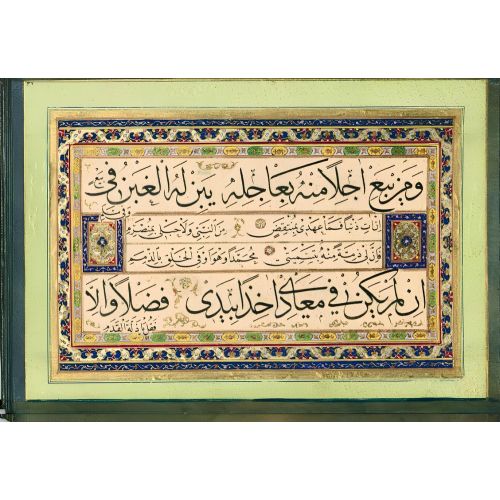 ومن يبع اجلا منه بعاجله يبن له الغبن في بيع
وفي سلم
ان آت ذنبا فما عهدي بمنتقض من النبي ولا حبلي بمنصرم
فان لي ذمة منه بتسميتي محمدا وهو اوفى الخلق بالذمم
ان لم يكن في معادي اخذا بيدي فضلا والا
فقل يا زلة القدم